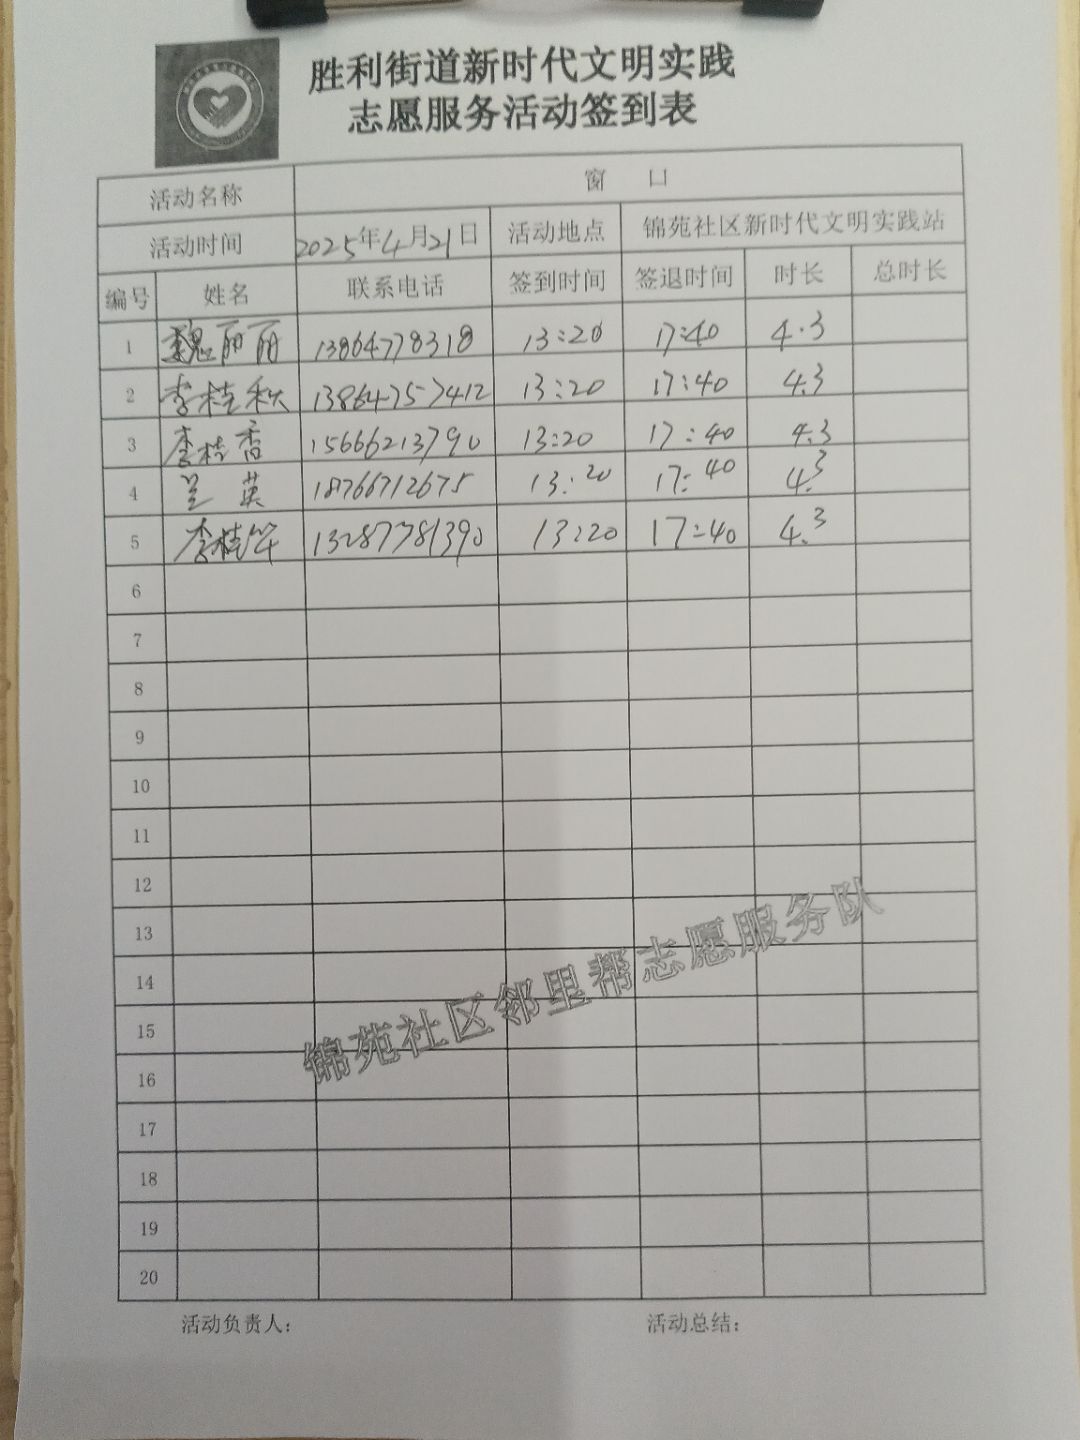 胜利街道新时代文明实践
志愿服务活动签到表
活动名称 窗 口
活动时间 2025年4月21日 活动地点 锦苑社区新时代文明实践站
编号 姓名 联系电话 签到时间 签退时间 时长 总时长
1 魏丽丽 13864778318 13:20 17:40 4.3
2 李桂秋 13864757412 13:20 17:40 4.3
3 李桂香 15666213790 13:20 17:40 4.3
4 兰英 18766712675 13:20 17:40 4.3
5 李桂 13287781390 13:20 17:40 4.3
6
7
8
9
10
11
12
13
14
15
16
17
18
19
20
锦苑社区邻里帮志愿服务队
活动负责人: 活动总结: